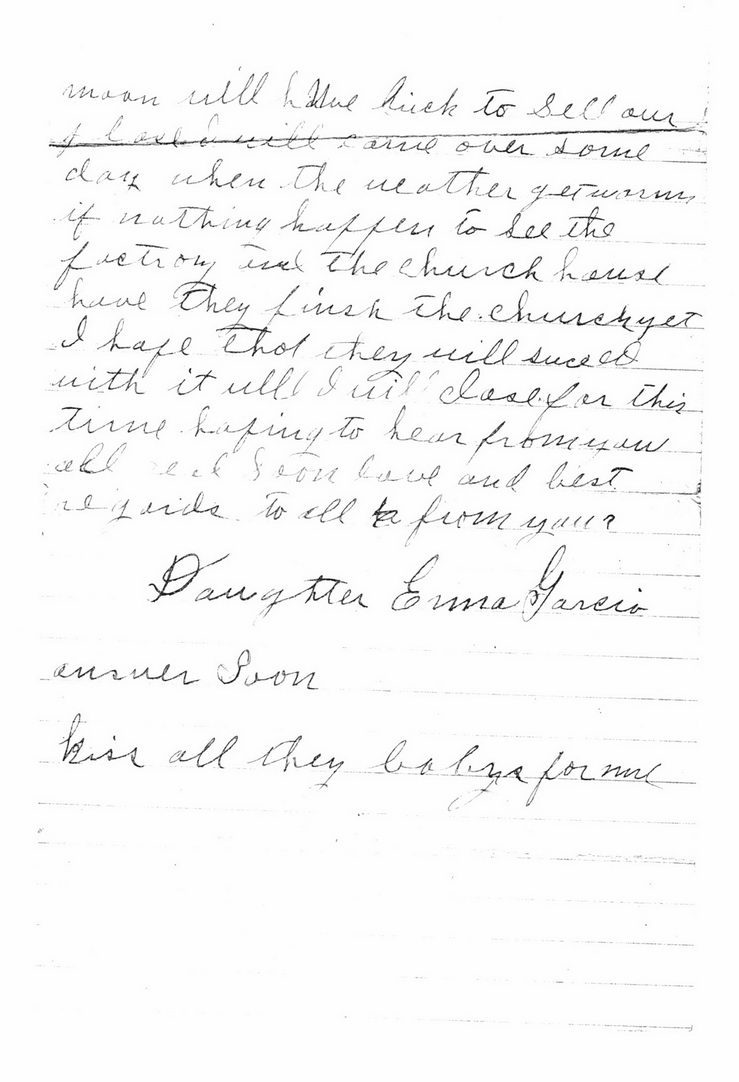 moon will have luck to sell our
place I will come over some
day when the weather get warm
if nothing happen to see the
factrory and the church house
have they finsh the church yet
I hope that they will suceed
with it well I will close for this
time hoping to hear from you
all real Soon love and best
regards to all from your
Daughter Emma Garcia
answer Soon
kiss all they babys for me